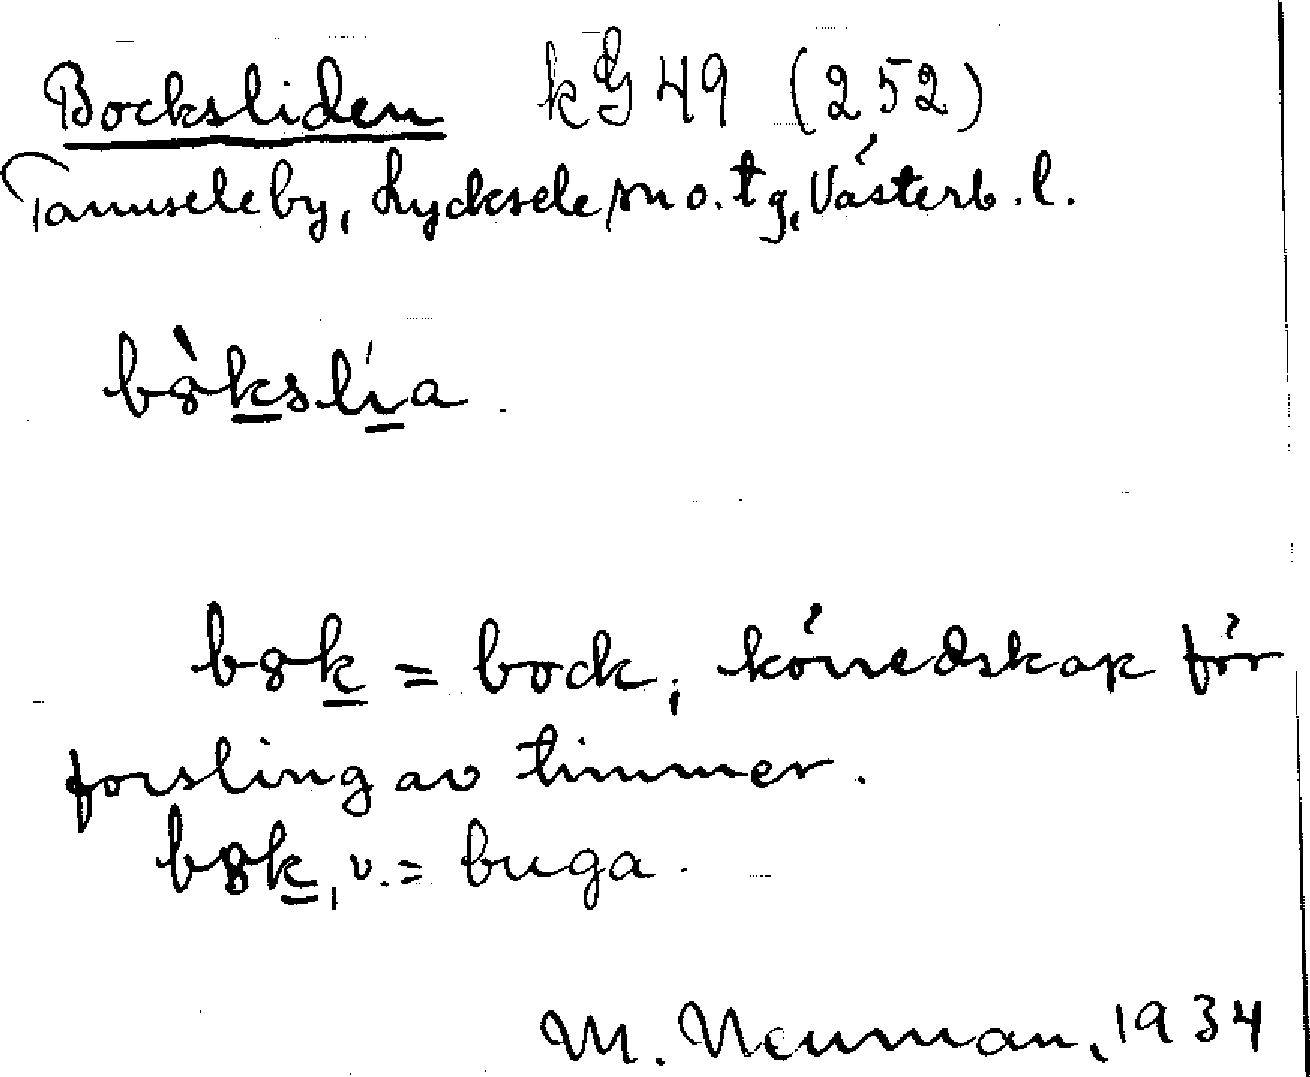 Bocksliden kg 49 (252)
Tannseleby, Lycksele sn o. tg, Västerb. l.
bò̀kslía
bȣk = bock, körredskap för
forsling av timmer.
bȣk, v. = buga.
M. Neuman, 1934